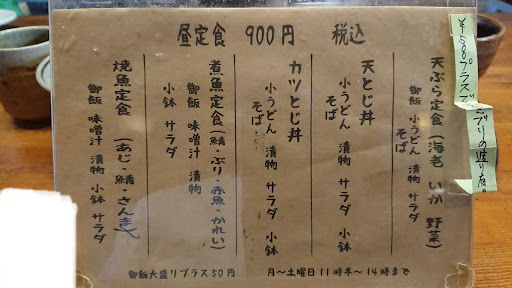 昼定食 900円 税込
天ぷら定食(海老 いか 野菜)
御飯 小うどん 漬物 サラダ 小鉢
そば
天とじ丼
小うどん 漬物 サラダ 小鉢
そば
カツとじ丼
小うどん 漬物 サラダ 小鉢
そば
煮魚定食(鯖・ぶり・赤魚・かれい)
御飯 味噌汁 漬物
小鉢 サラダ
焼魚定食 (あじ・鯖・さんま)
御飯 味噌汁 漬物 小鉢 サラダ
御飯大盛りプラス50円
月〜土曜日11時半〜14時まで